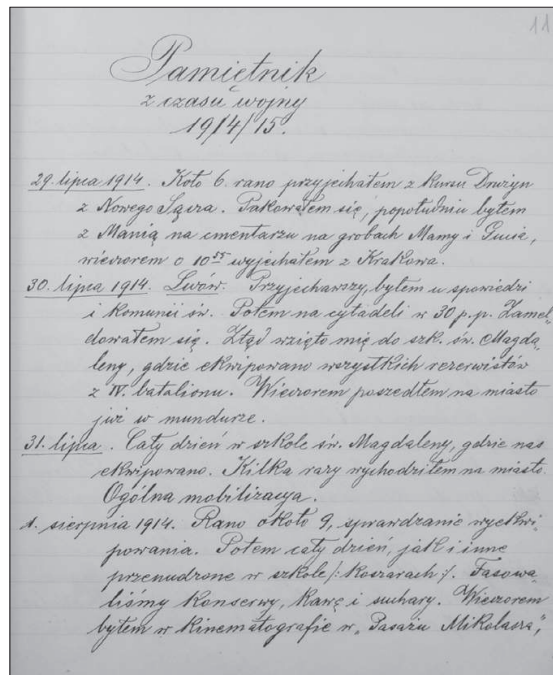 11
Pamiętnik
z czasu wojny
1914/15.
29. lipca 1914. Koło 6. rano przyjechałem z kursu Drużyn
z Nowego Sącza. Pakowałem się, popołudniu byłem
z Manią na cmentarzu na grobach Mamy i Gucie,
wieczorem o 10 55 wyjechałem z Krakowa.
30. lipca 1914. Lwów. Przyjechawszy, byłem u spowiedzi
i Komunii św. Potem na cytadeli w 30 p.p. zamel-
dowałem się. Ztąd wzięto mię do szk. św. Magda-
leny, gdzie ekwipowano wszystkich rezerwistów
z IV. batalionu. Wieczorem poszedłem na miasto
już w mundurze.
31. lipca. Cały dzień w szkole św. Magdaleny, gdzie nas
ekwipowano. Kilka razy wychodziłem na miasto.
Ogólna mobilizacya.
1. sierpnia 1914. Rano około 9, sprawdzanie wyekwi-
powania. Potem cały dzień, jak i inne
przenudzone w szkole /: koszarach :/. Fasowa-
liśmy konserwy, kawę i suchary. Wieczorem
byłem w kinematografie w „Pasażu Mikolasza",